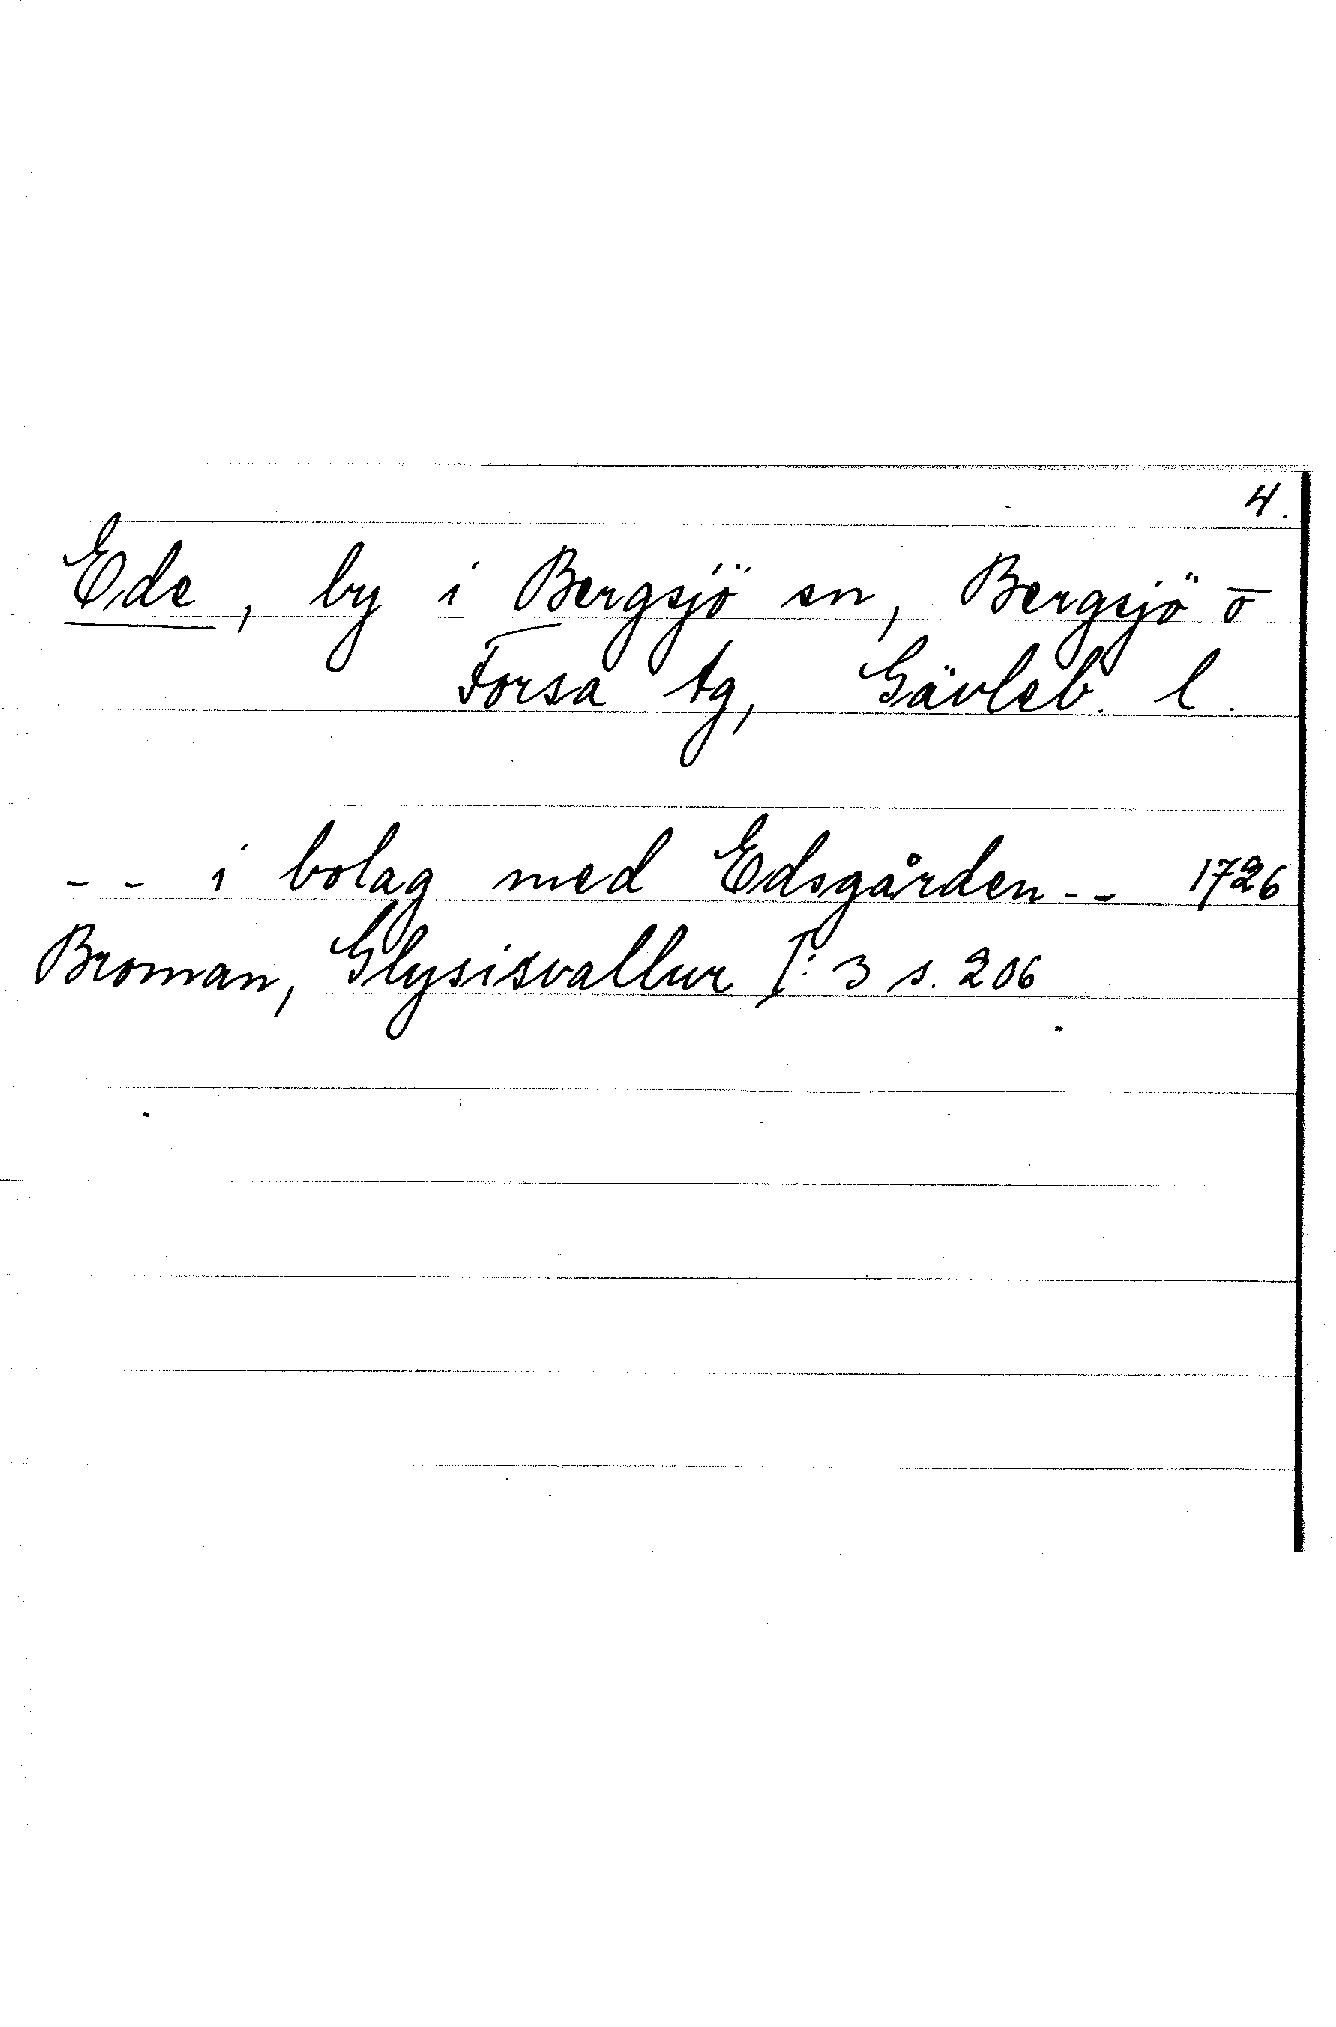 4.
Ede, by i Bergsjö sn, Bergsjö o
Forsa tg, Gävleb. l.
-- i bolag med Edsgården -- 1726
Broman, Glysisvallur I:3 s. 206